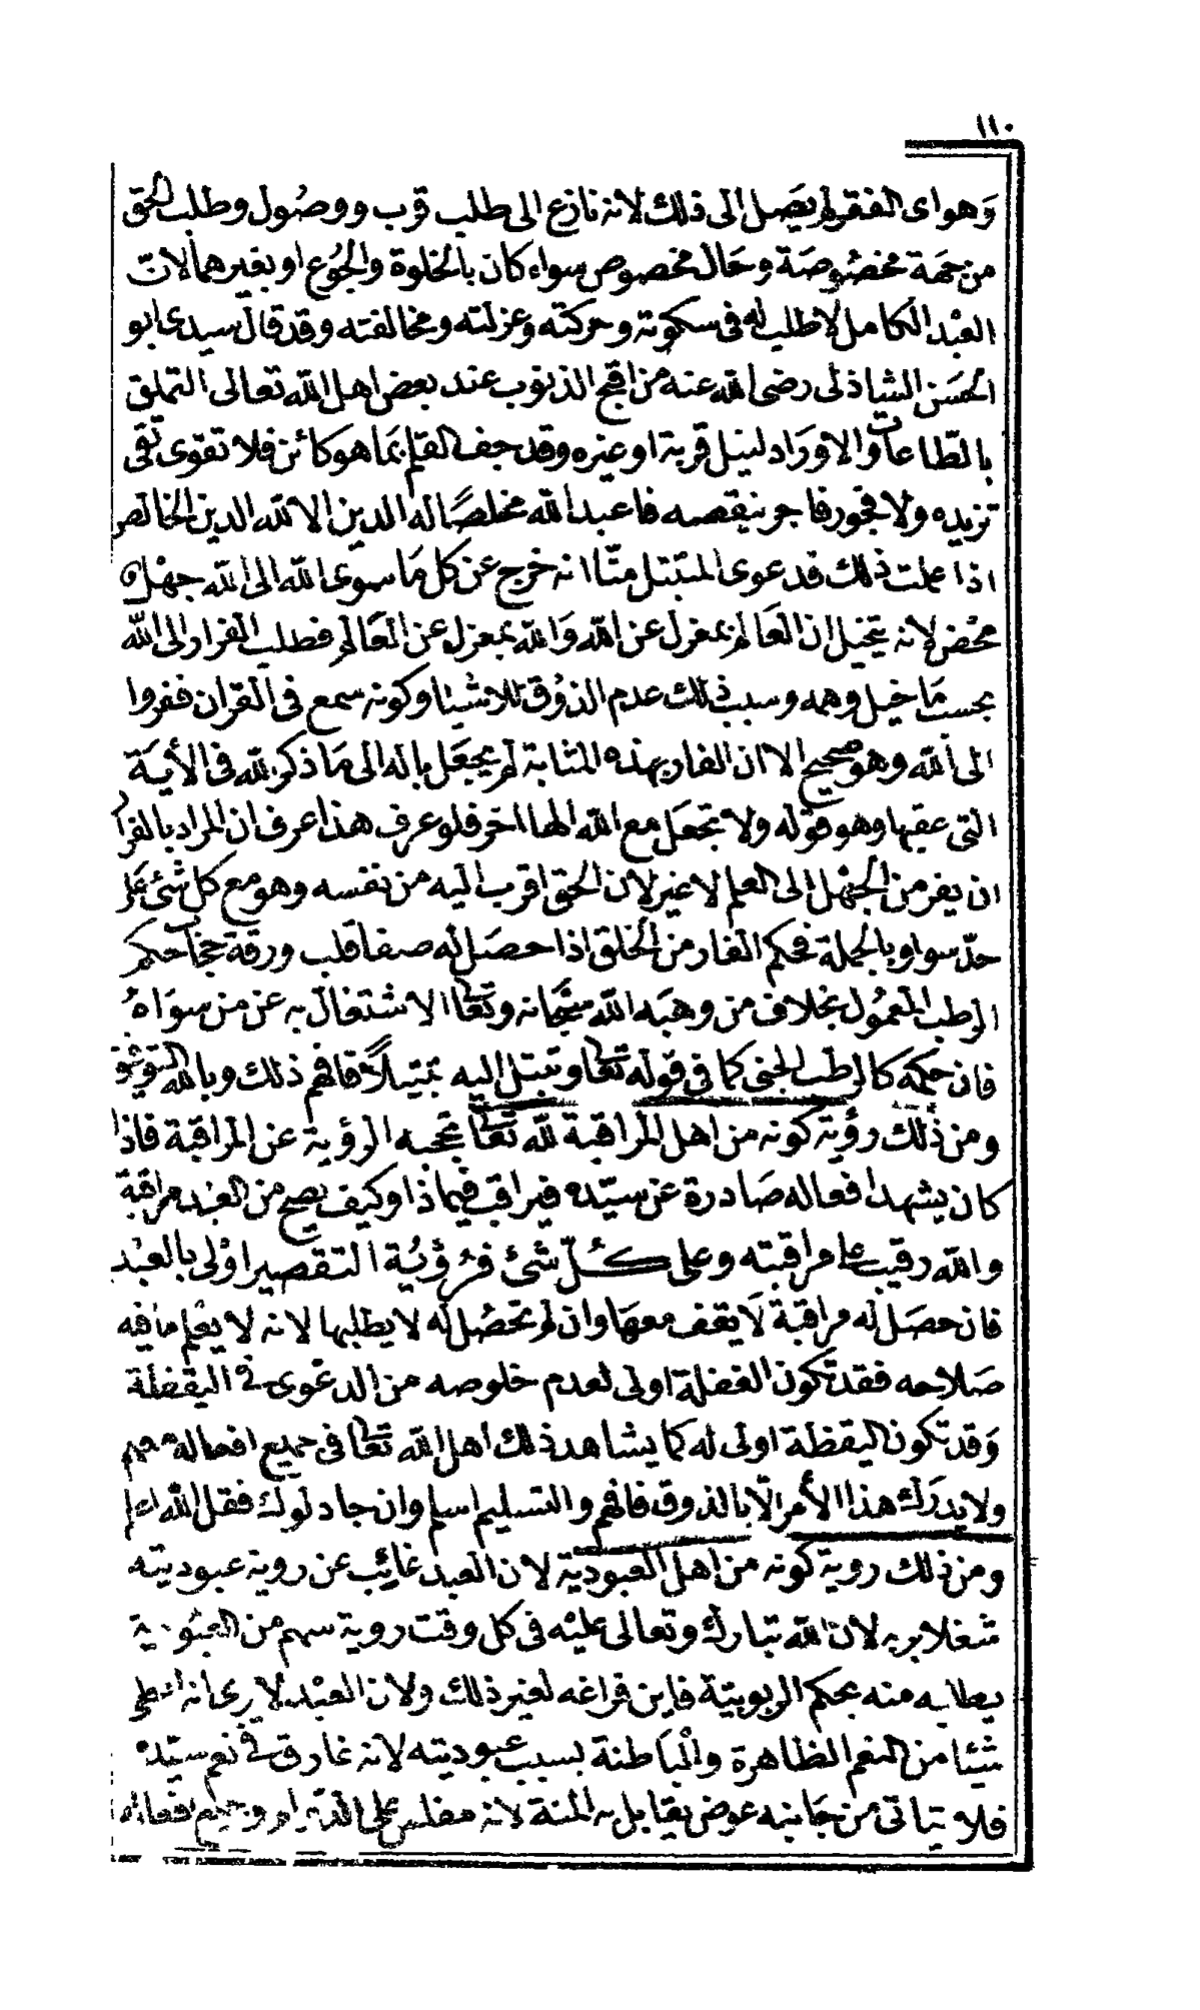 ١١٠
وهو اى الفقر لم يصل الى ذلك لانه نازع الى طلب قرب ووصول وطلب الحق
من جهة مخصوصة وحال مخصوص سواء كان بالخلوة والجوع او بغيرهما لان
العبد الكامل لا طلب له فى سكونه وحركته وعزلته ومخالفته وقد قال سيدى ابو
الحسن الشاذلى رضى الله عنه من اقبح الذنوب عند بعض اهل الله تعالى التملق
بالطاعات والاوراد لنيل قربة او غيره وقد جف القلم بما هو كائن فلا تقوى تقى
تزيده ولا فجور فاجر ينقصه فاعبد الله مخلصًا له الدين الا لله الدين الخالص
اذا علمت ذلك فدعوى المتبتل منّا انه خرج عن كل ما سوى الله الى الله جهل
محض لانه يتخيل ان العالم بمعزل عن الله والله بمعزل عن العالم فطلب الفرار الى الله
بحسب ما خيل وهمه وسبب ذلك عدم الذوق للاشيا وكونه سمع فى القران ففروا
الى الله وهو صحيح الا ان الفار بهذه المثابة لم يجعل باله الى ما ذكر الله فى الأية
التى عقبها وهو قوله ولا تجعل مع الله الها اخر فلو عرف هذا عرف ان المراد بالفرار
ان يفر من الجهل الى العلم لا غير لان الحق اقرب اليه من نفسه وهو مع كل شئ على
حدّ سوا وبالجملة فحكم الفار من الخلق اذا حصل له صفا قلب ورقة حجاب حكم
الرطب المعمول بخلاف من وهبه الله سبحانه وتعا الاشتغال به عن من سواهُ
فان حكمه كالرطب الجنى كما فى قوله تعا وتبتل اليه تبتيلاً فافهم ذلك وبالله التوفيق
ومن ذلك رؤية كونه من اهل المراقبة لله تعا فتحجبه الرؤية عن المراقبة فاذا
كان يشهد افعاله صادرة عن سيّده فيراقب فيماذا وكيف يصح من العبد مراقبة
والله رقيب على مراقبته وعلى كـلّ شئ فرؤية التقصير اولى بالعبد
فان حصل له مراقبة لا يقف معها وان لم تحصل له لا يطلبها لانه لا يعلم ما فيه
صلاحه فقد تكون الغفلة اولى لعدم خلوصه من الدعوى فى اليقظة
وقد تكون اليقظة اولى له كما يشاهد ذلك اهل الله تعا فى جميع افعاله معهم
ولا يدرك هذا الأمر الّا بالذوق فافهم والتسليم اسلم وان جادلوك فقل الله اعلم
ومن ذلك روية كونه من اهل العبودية لان العبد غائب عن روية عبوديته
شغلا بربه لان لله تبارك وتعالى عليه فى كل وقت روية سهم من العبودية
يطلبه منه بحكم الربوبية فاين فراغه لغير ذلك ولان العبد لا يرى انه اعطى
شيئا من النعم الظاهرة والباطنة بسبب عبوديته لانه غارق فى نعم سيّده
فلا يتاتى من جانبه عوض يقابل به المنة لانه مفلس على الدوام وجميع افعاله